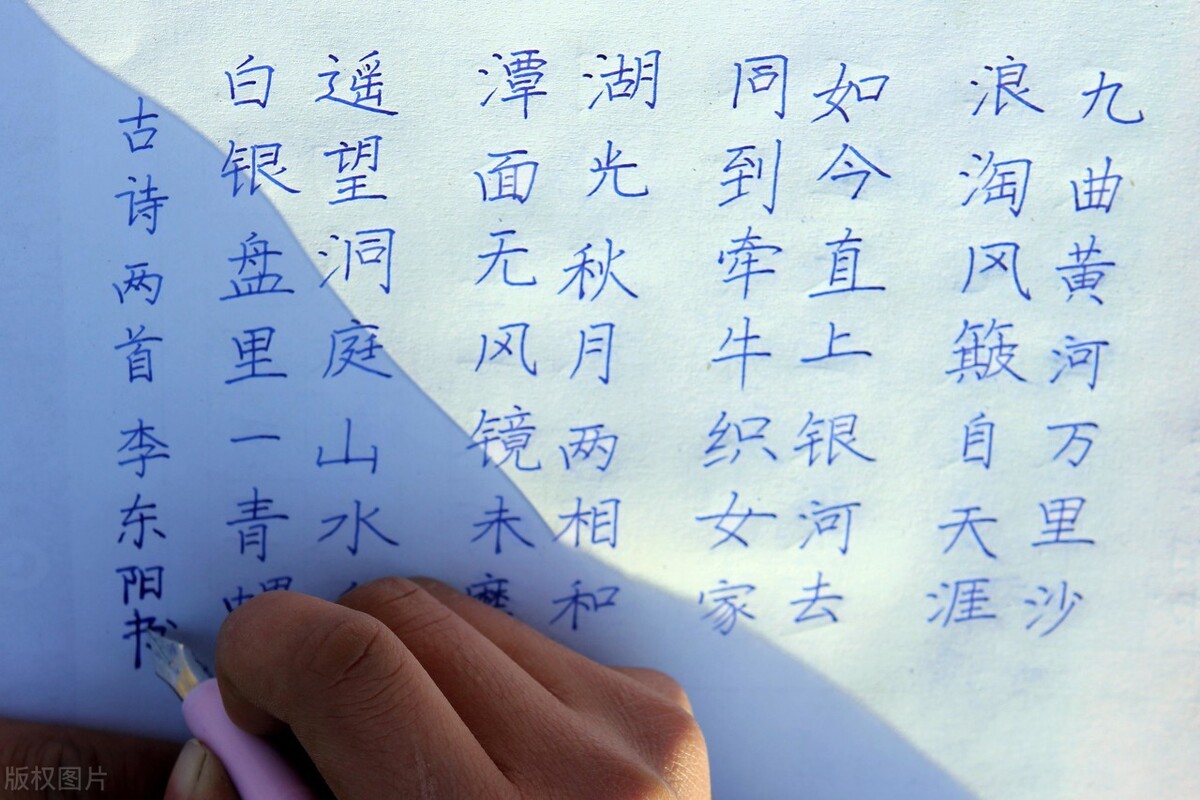 九曲黄河万里沙
浪淘风簸自天涯
如今直上银河去
同到牵牛织女家
湖光秋月两相和
潭面无风镜未磨
遥望洞庭山水
白银盘里一青螺
古诗两首李东阳书
版权图片